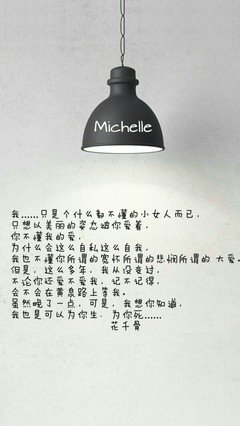 Michelle
我……只是个什么都不懂的小女人而已，
只想以美丽的姿态被你爱着，
你不懂我的爱，
为什么会这么自私这么自我，
我也不懂你所谓的宽怀所谓的悲悯所谓的 大爱。
但是，这么多年，我从没变过，
不论你还爱不爱我，记不记得，
会不会在黄泉路上等我，
虽然晚了一点，可是，我想你知道，
我也是可以为你生、为你死……
花千骨